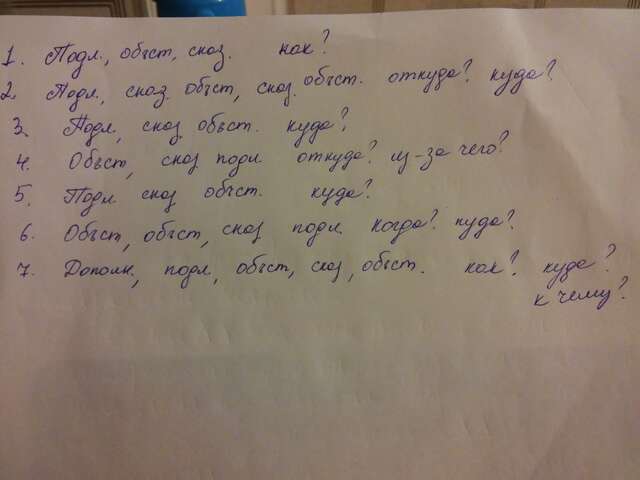 1. Подл., обст, сказ. как?
2. Подл, сказ. обст, сказ. обст. откуда? куда?
3. Подл, сказ обьст. куда?
4. Обьст, сказ подл откуда? из-за чего?
5. Подл сказ обст. куда?
6. Обьст, обьст, сказ подл. когда? куда?
7. Дополн, подл, обьст, сказ, обьст. как? куда?
к чему?